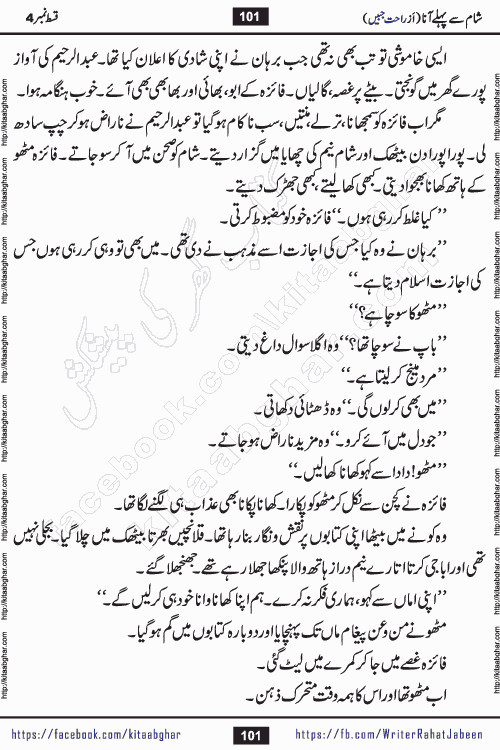 شام سے پہلے آنا (از راحت جبیں) 101 قسط نمبر 4
ایسی خاموشی تو تب بھی نہ تھی جب برہان نے اپنی شادی کا اعلان کیا تھا۔ عبدالرحیم کی آواز
پورے گھر میں گونجتی۔ بیٹے پر غصہ، گالیاں۔ فائزہ کے ابو، بھائی اور بھابھی بھی آئے۔ خوب ہنگامہ ہوا۔
مگر اب فائزہ کو سمجھانا، ترلے، منتیں، سب ناکام ہو گیا تو عبدالرحیم نے ناراض ہو کر چپ سادھ
لی۔ پورا پورا دن بیٹھک اور شام نیم کی چھایا میں گزار دیتے۔ شام کو صحن میں آ کر سو جاتے۔ فائزہ مٹھو
کے ہاتھ کھانا بھجوا دیتی۔ کبھی کھا لیتے، کبھی جھڑک دیتے۔
’’کیا غلط کر رہی ہوں۔‘‘ فائزہ خود کو مضبوط کرتی۔
’’برہان نے وہ کیا جس کی اجازت اسے مذہب نے دی تھی۔ میں بھی تو وہی کر رہی ہوں جس
کی اجازت اسلام دیتا ہے۔‘‘
’’مٹھو کا سوچا ہے؟‘‘
’’باپ نے سوچا تھا؟‘‘ وہ اگلا سوال داغ دیتی۔
’’مرد مینج کر لیتا ہے۔‘‘
’’میں بھی کر لوں گی۔‘‘ وہ ڈھٹائی دکھاتی۔
’’جو دل میں آئے کرو۔‘‘ وہ مزید ناراض ہو جاتے۔
’’مٹھو! دادا سے کہو کھانا کھا لیں۔‘‘
فائزہ نے کچن سے نکل کر مٹھو کو پکارا۔ کھانا پکانا بھی عذاب ہی لگنے لگا تھا۔
وہ کونے میں بیٹھا اپنی کتابوں پر نقش و نگار بنا رہا تھا۔ قلانچیں بھرتا بیٹھک میں چلا گیا۔ بجلی نہیں
تھی اور ابا جی کرتا اتارے نیم دراز ہاتھ والا پنکھا جھلا رہے تھے۔ جھنجھلا گئے۔
’’اپنی اماں سے کہو، ہماری فکر نہ کرے۔ ہم اپنا کھانا وانا خود ہی کر لیں گے۔‘‘
مٹھو نے من و عن پیغام ماں تک پہنچایا اور دوبارہ کتابوں میں گم ہو گیا۔
فائزہ غصے میں جا کر کمرے میں لیٹ گئی۔
اب مٹھو تھا اور اس کا ہمہ وقت متحرک ذہن۔
https://facebook.com/kitaabghar 101 https://fb.com/WriterRahatJabeen
http://kitaabghar.com http://kitaabghar.com http://kitaabghar.com http://kitaabghar.com http://kitaabghar.com
http://kitaabghar.com http://kitaabghar.com http://kitaabghar.com http://kitaabghar.com http://kitaabghar.com
کتاب گھر کی پیشکش
kitaabghar.com
facebook.com/kitaabghar